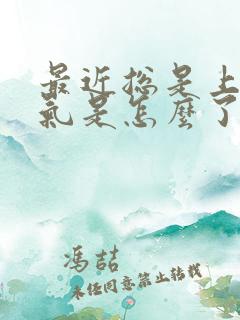 最近总是上
氣是怎麼了
冯喆
未经同意禁止转载